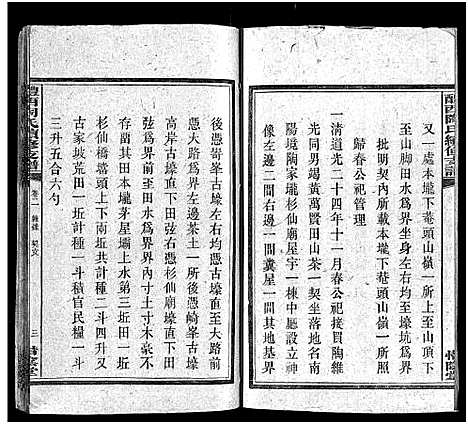 醴西陶氏續修支譜
又一處本壠下菴頭山嶺一所上至山頂下
至山脚田水爲界坐身左右均至古壕坑爲界
批明契內所載本壠下菴頭山嶺一所仰照
歸春公祀管理
一淸道光二十四年十一月春公祀接買陶維
光同男錫黃萬賢田山茶一契坐落地名南
陽境陶家壠杉仙廟屋宇一棟中廳設立神
龕左邊二間右邊二間一糞屋一間其地基界
惜陰堂
後憑崎峯古壕直左右均憑古壕直至大路前
憑大路爲界左邊茶土一所後憑崎峯古壕直
至高岸古壕右憑杉仙廟壕直下前至大路下
弦爲界前至田水爲界界內寸土寸木毫不
存蓄其田本壠茅屋壩上水第三坵田一坵
杉仙橋塆頭上下兩坵共計種二斗四升又
古家坡荒田一坵計種一斗積官民糧一斗
三升五合六勺
醴西陶氏續修支譜
卷二 雜錄 契文
三
惜陰堂